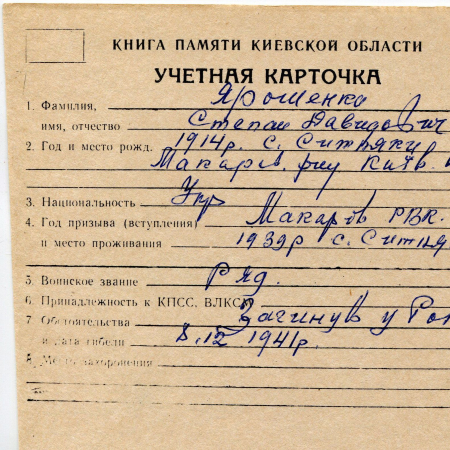 КНИГА ПАМЯТИ КИЕВСКОЙ ОБЛАСТИ
УЧЕТНАЯ КАРТОЧКА
1. Фамилия, Ярошенко
имя, отчество Степан Давидович
2. Год и место рожд. 1914р. с. Ситняки
Макарів. р-ну Київ.
3. Национальность Укр
4. Год призыва (вступления) Макаров РВК.
и место проживания 1939р с. Ситня
5. Воинское звание Ряд.
6. Принадлежность к КПСС, ВЛКСМ
7. Обстоятельства Загинув у
и дата гибели 8.12 1941р.
8. Место захоронения